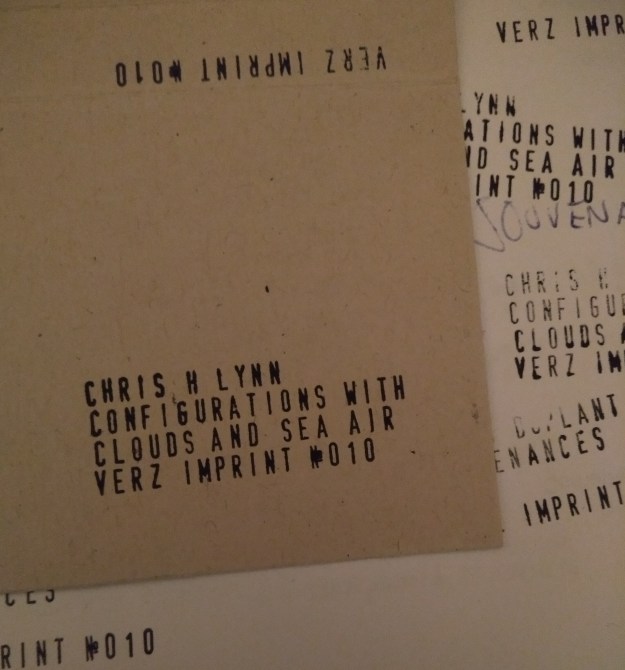 VERZ IMPRINT №010
CHRIS H LYNN
CONFIGURATIONS WITH
CLOUDS AND SEA AIR
VERZ IMPRINT №010
VERZ IMPR
LYNN
ATIONS WITH
ND SEA AIR
INT №010
SOUVENA
CHRIS H
CONFIGU
CLOUDS A
VERZ IM
PLANT
ENANCES
IMPRINT
CES
RINT №010